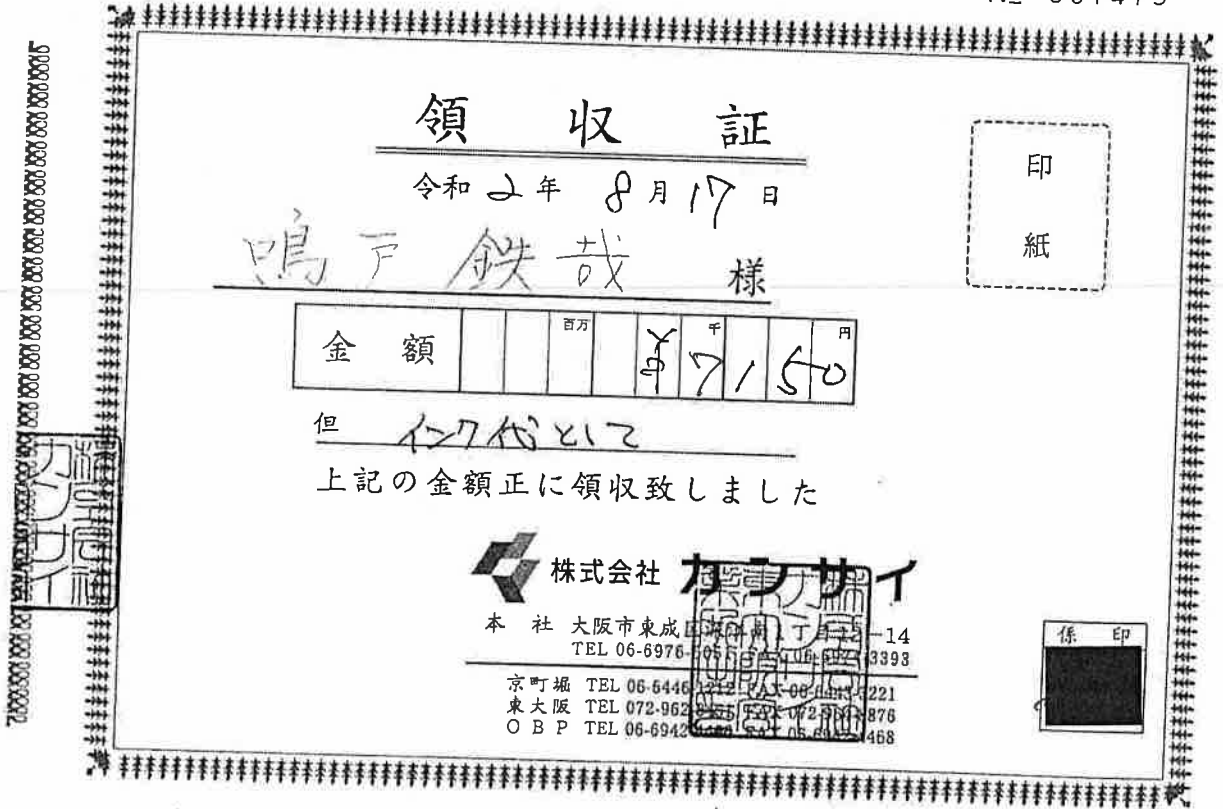 領収証
令和2年 8月17日
鳴戸鉄哉 様
印紙
金額 百万 ¥ 千 7150 円
但 インク代として
上記の金額正に領収致しました
株式会社 カンサイ
本社 大阪市東成区 1丁目 -14
TEL 06-6976- 3393
京町堀 TEL 06-6446- FAX 06- 221
東大阪 TEL 072-962- 876
OBP TEL 06-6942- 468
係印